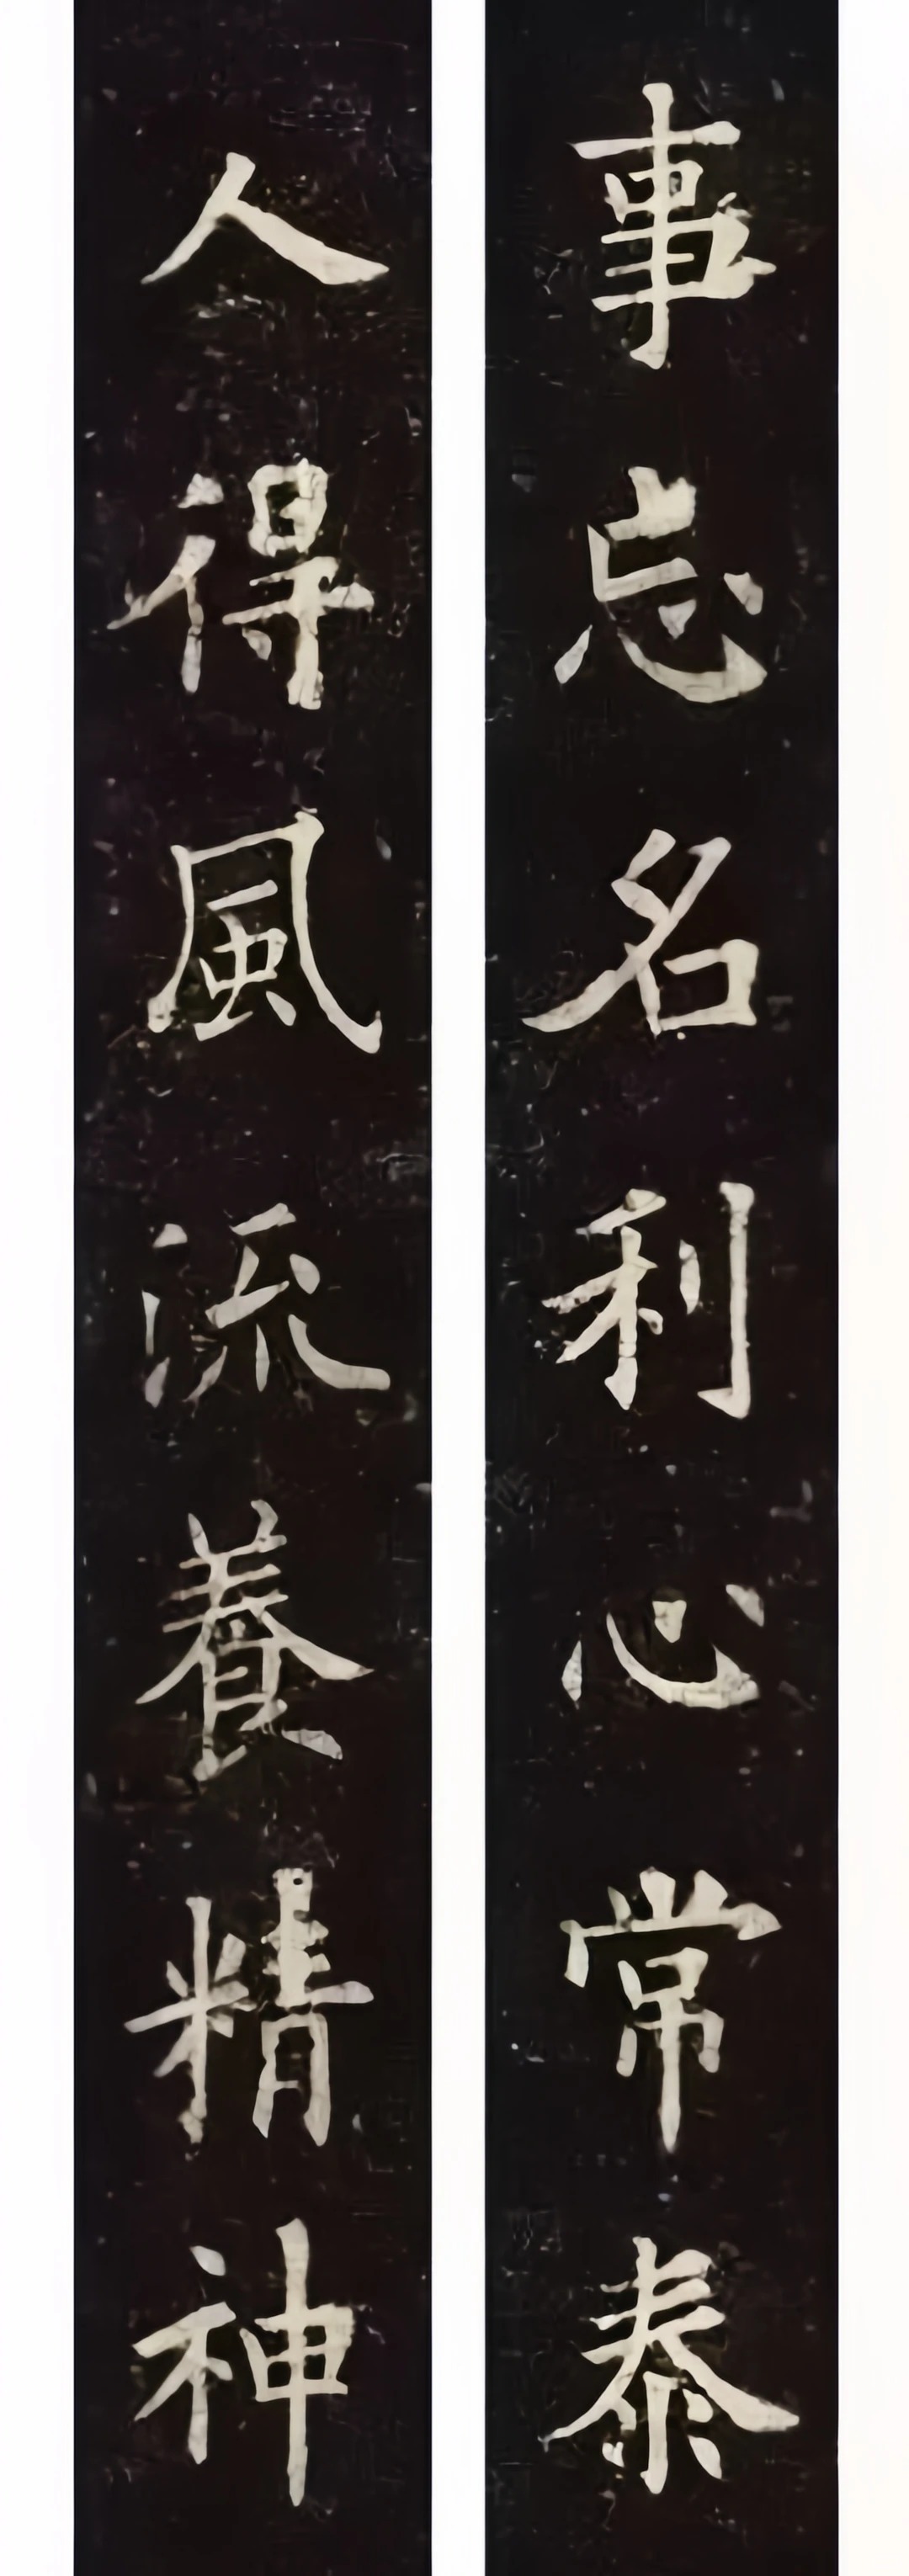 事忘名利心常泰
人得風流養精神